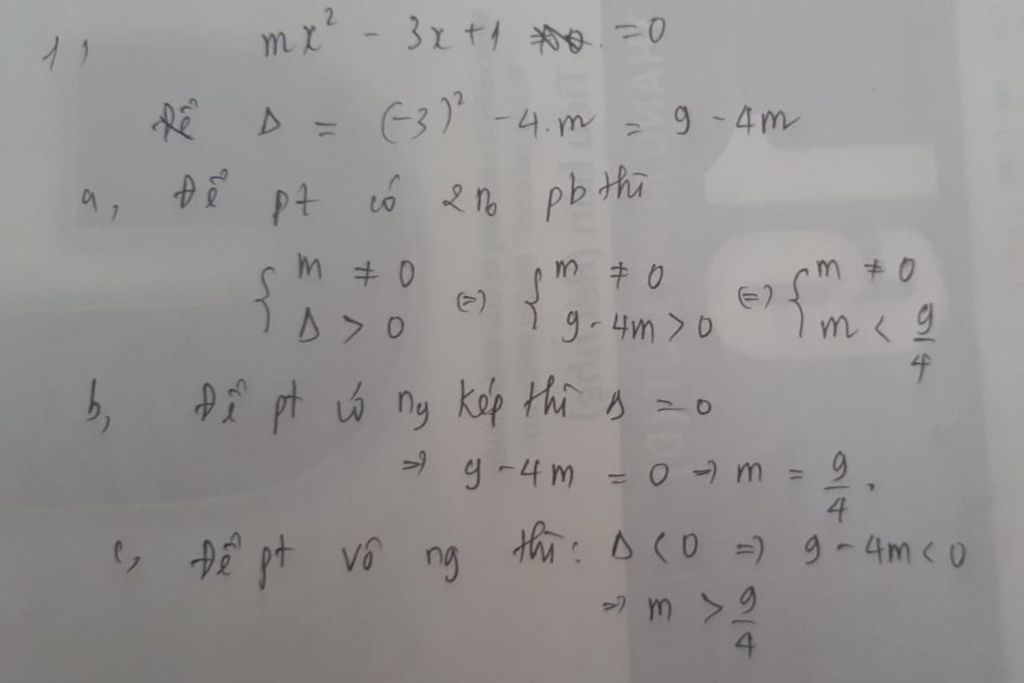 1, mx² - 3x + 1 = 0
Để Δ = (-3)² - 4.m = 9 - 4m
a, Để pt có 2 n₀ pb thì
{ m ≠ 0 (=) { m ≠ 0 (=) { m ≠ 0
{ Δ > 0 { 9 - 4m > 0 { m < 9/4
b, Để pt có ng kép thì Δ = 0
=> 9 - 4m = 0 => m = 9/4.
c, Để pt vô ng thì: Δ < 0 => 9 - 4m < 0
=> m > 9/4